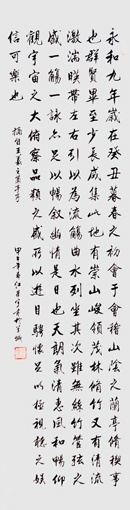 永和九年歲在癸丑暮春之初會于會稽山陰之蘭亭脩稧事
也群賢畢至少長咸集此地有崇山峻領茂林脩竹又有清流
激湍暎帶左右引以為流觴曲水列坐其次雖無絲竹管弦之
盛一觴一詠亦足以暢叙幽情是日也天朗氣清惠風和暢仰
觀宇宙之大俯察品類之盛所以遊目騁懷足以極視聽之娛
信可樂也
摘自王羲之蘭亭序